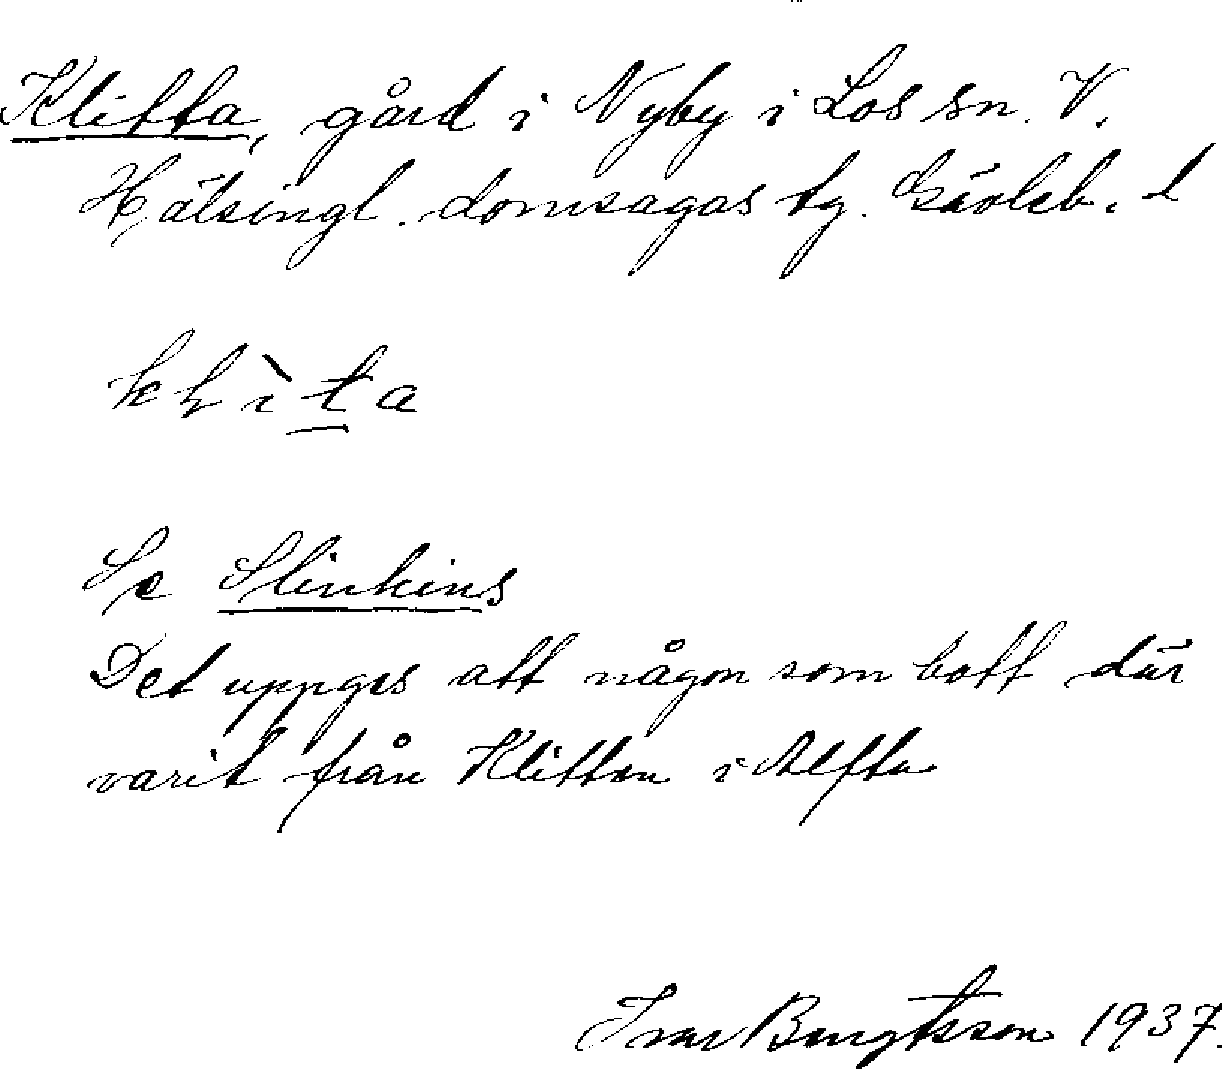 Klitta, gård i Nyby i Los sn. V.
Hälsingl. domsagas tg. Gävleb. l
kḷìta
Se Slinkins
Det uppges att någon som bott där
varit från Klitten i Alfta
Ivar Bengtsson 1937.